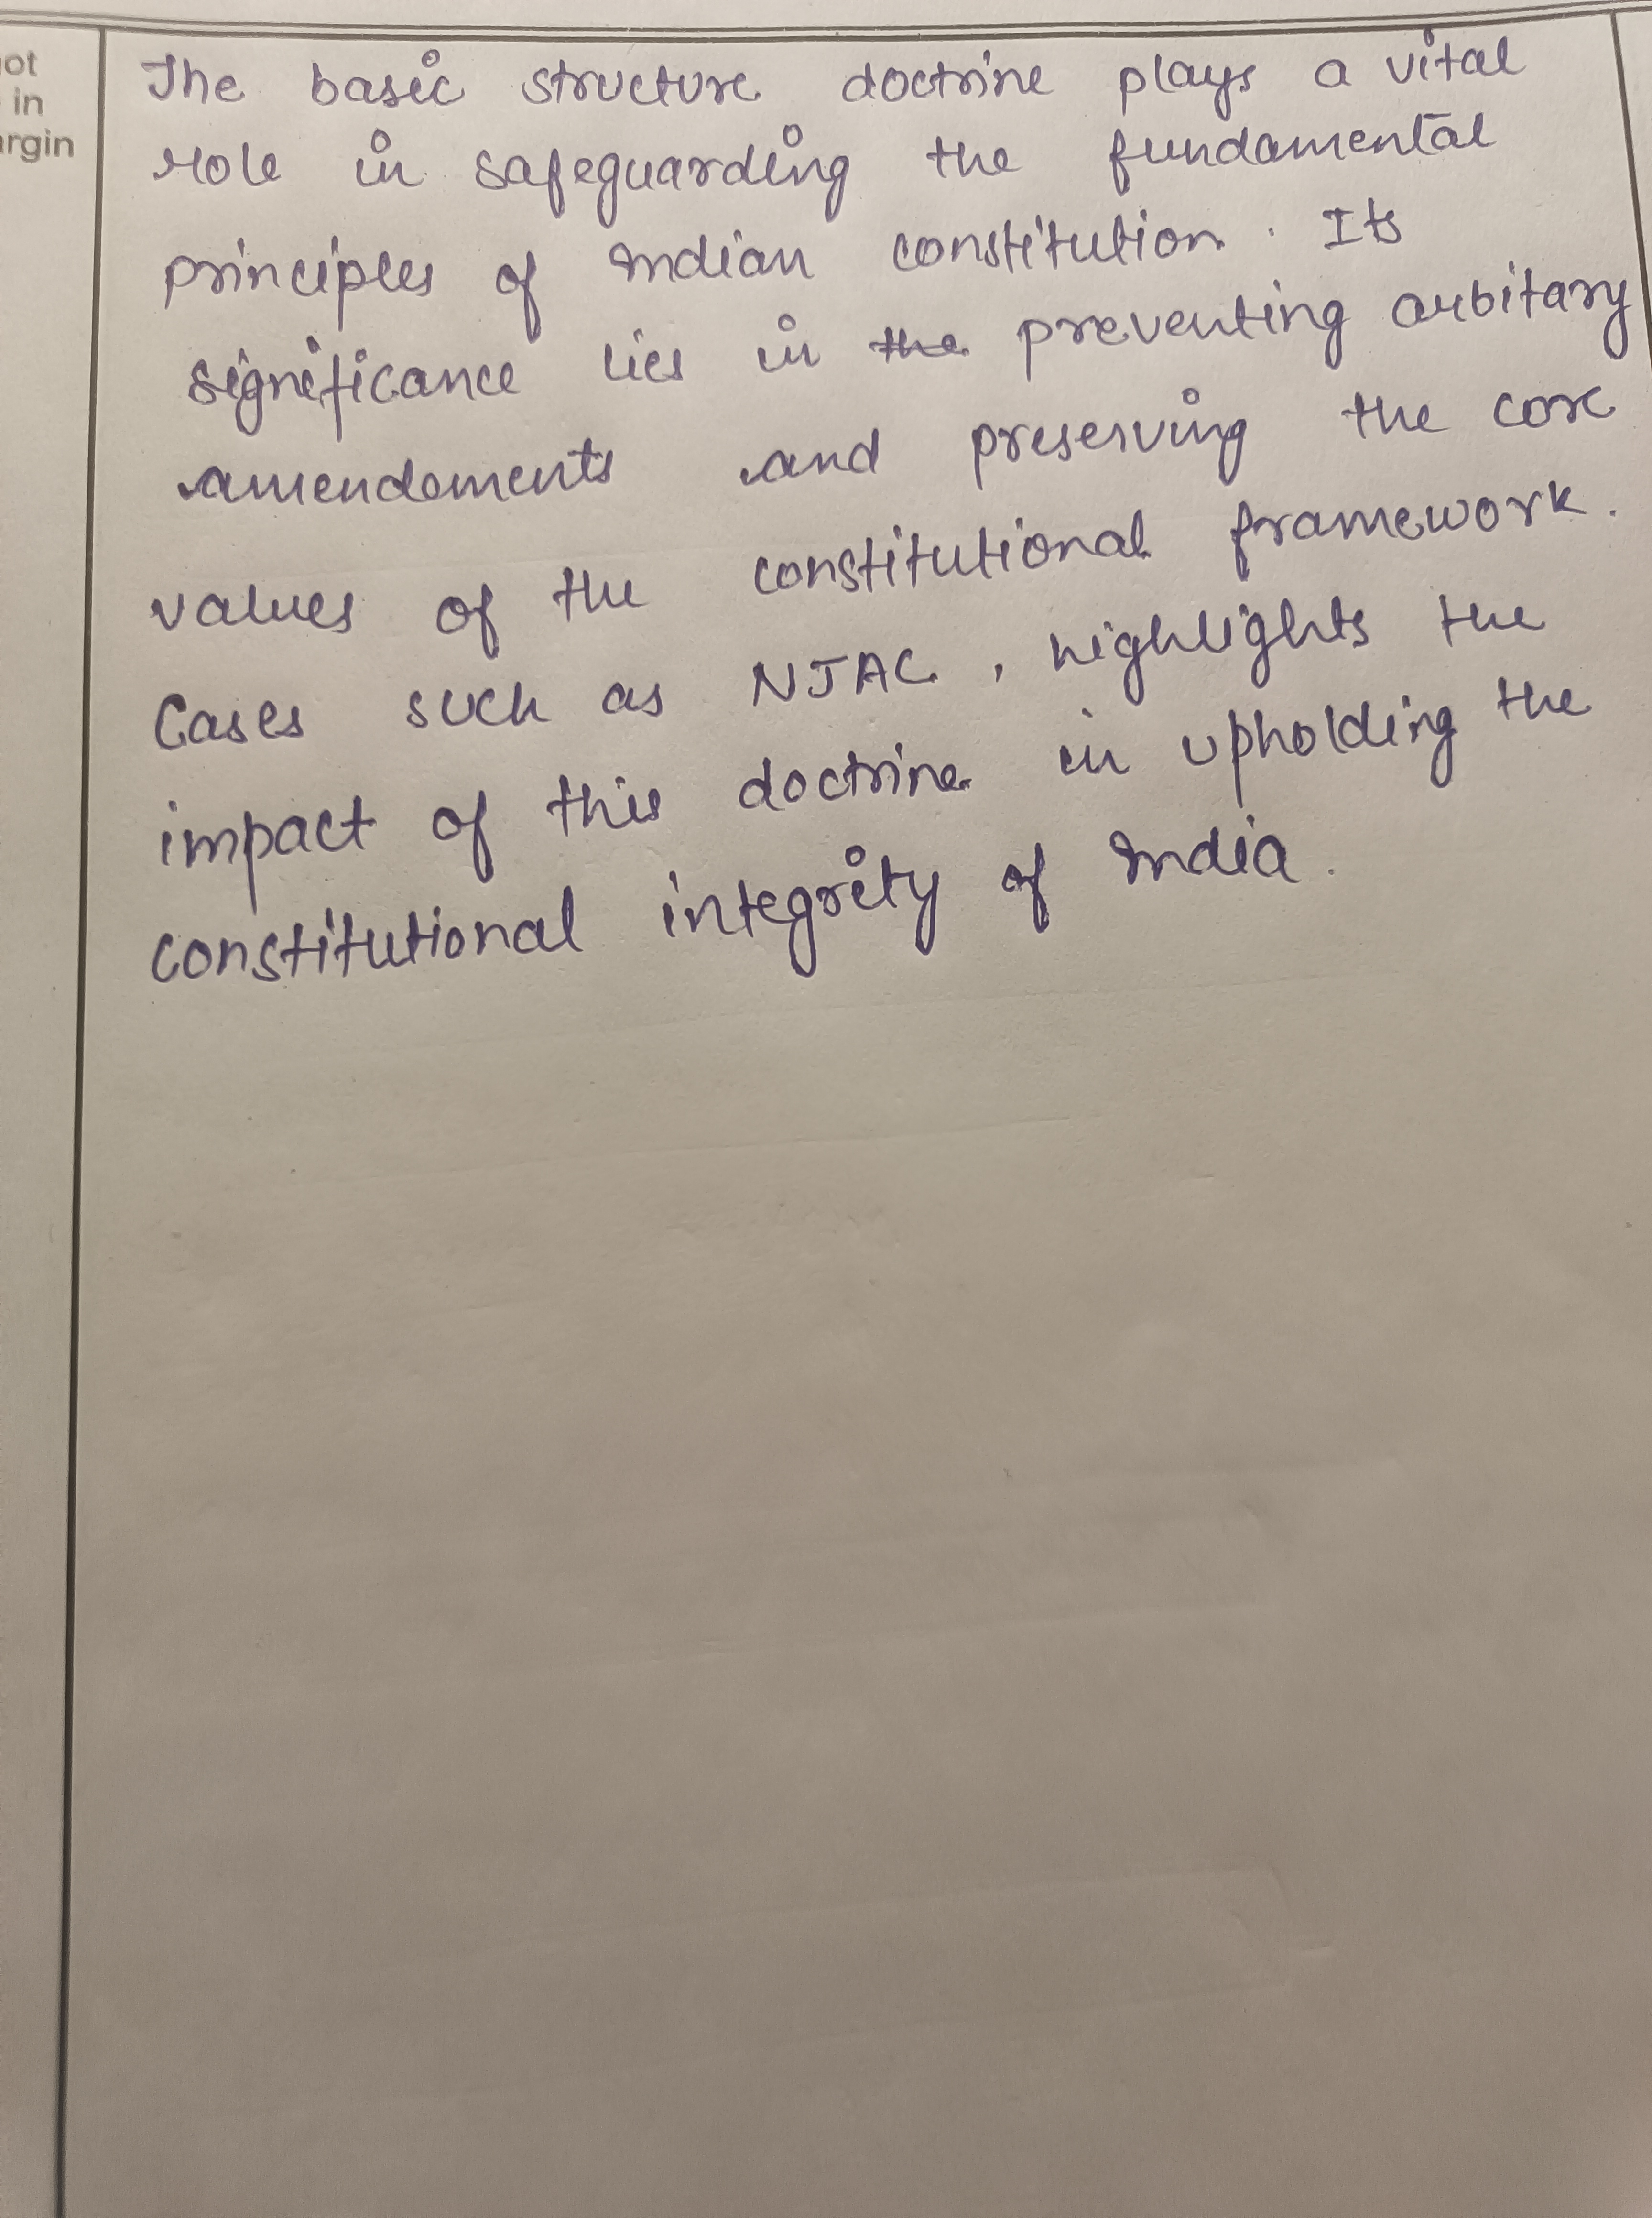 The basic structure doctrine plays a vital
role in safeguarding the fundamental
principles of Indian constitution. Its
significance lies in the preventing arbitary
amendements and preserving the core
values of the constitutional framework.
Cases such as NJAC, highlights the
impact of this doctrine in upholding the
constitutional integrity of India.
ot
in
rgin